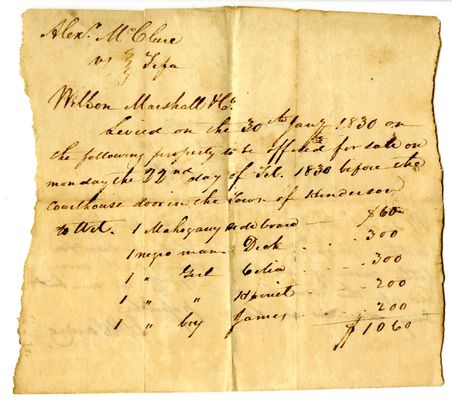 Alexr. McClure
vs
Fifa
Wilson Marshall & Co
Levied on the 30th Jany 1830 on
the following property to be offered for sale on
monday the 22nd day of Feb. 1830 before the
Courthouse door in the Town of Henderson
to Wit. 1 Mahogany side board — $60
1 negro man Dick - - 300
1 " Girl Celia - - - 300
1 " " Harriet - - 200
1 " boy James - - 200
$1060